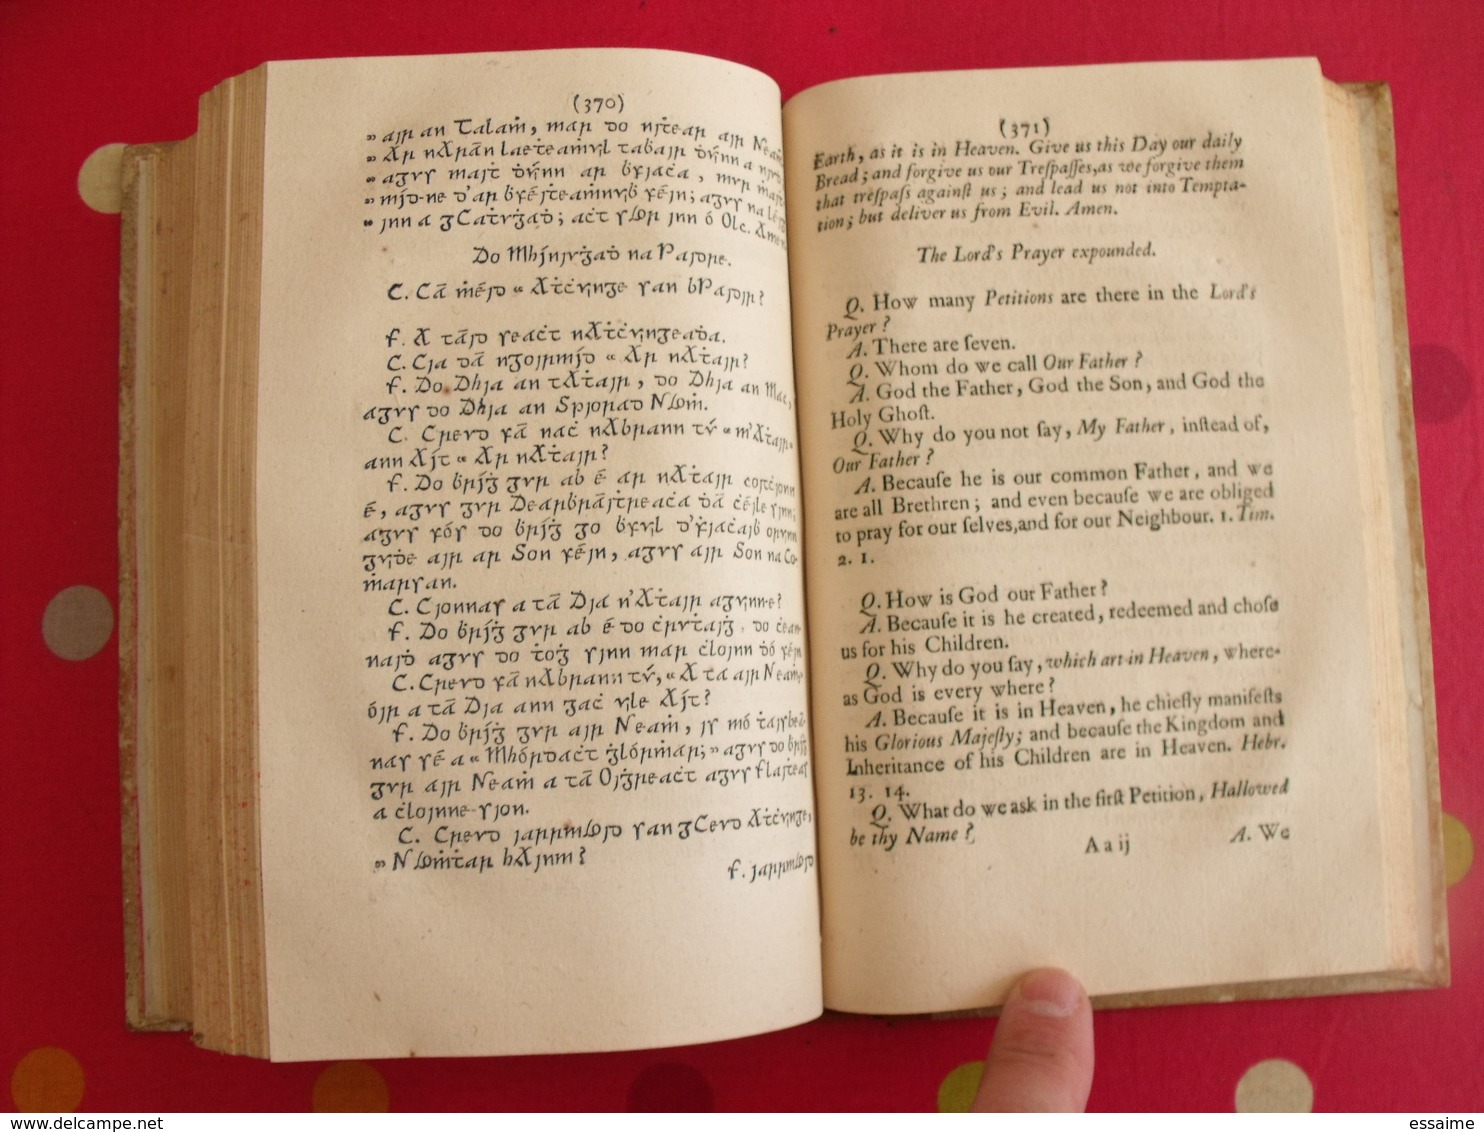 (370)
„ ajr an Talaṁ, mar do njṫear ajr Neaṁ
„ Ar nArān laeṫeaṁvjl taḃajr ḋvjnn a njvḋ
„ agvs majṫ ḋvjnn ar ḃfjaċa, mvr majṫ-
„ mjd-ne d'ar ḃféjṫeaṁnvjḃ féjn; agvs na léjg
„ jnn a gCaṫvġaḋ; aċt saor jnn ó Olc. Amen.
Do Mhjnjvġaḋ na Pajdre.
C. Cā ṁéjd „ Aṫċvjnge san bPajdjr?
F. A tājd seaċt nAṫċvjngeaḋa.
C. Cja dā ngojrmjd „ Ar nAṫajr?
F. Do Dhja an tAṫajr, do Dhja an Mac,
agvs do Dhja an Spjorad Naoṁ.
C. Crevd fā naċ nAbrann tv́ „ m'Aṫajr„
ann Ájt „ Ar nAṫajr?
F. Do ḃrjġ gvr ab é ar nAṫajr cojtċjonn
é, agvs gvr Dearbrājṫreaċa ḋā ċéjle sjnn;
agvs fós do ḃrjġ go ḃfvjl d'fjaċajḃ orvjnn
gvjḋe ajr ar Son féjn, agvs ajr Son na Co-
ṁarsan.
C. Cjonnas a tā Dja n'Aṫajr agvjnn-e?
F. Do ḃrjġ gvr ab é do ċrvtajġ, do ċean-
najḋ agvs do ṫoġ sjnn mar ċlojnn ḋó féjn
C. Crevd fā nAbrann tv́, „ A ta ajr Neaṁ„
ójr a tā Dja ann gaċ vjle Ájt?
F. Do ḃrjġ gvr ajr Neaṁ, js mó ṫajsbeā-
nas sé a „ Mhórdaċt ġlórṁar;„ agvs do ḃrjġ
gvr ajr Neaṁ a tā Ojġreaċt agvs flajṫeas
a ċlojnne-sjon.
C. Crevd jarrmaojd san gCevd Aṫċvjnge,
„ Naoṁṫar hAjnm?
F. jarrmaojd
(371)
Earth, as it is in Heaven. Give us this Day our daily
Bread; and forgive us our Treſpaſſes, as we forgive them
that treſpaſs againſt us; and lead us not into Tempta-
tion; but deliver us from Evil. Amen.
The Lord's Prayer expounded.
Q. How many Petitions are there in the Lord's
Prayer?
A. There are ſeven.
Q. Whom do we call Our Father?
A. God the Father, God the Son, and God the
Holy Ghoſt.
Q. Why do you not ſay, My Father, inſtead of,
Our Father?
A. Becauſe he is our common Father, and we
are all Brethren; and even becauſe we are obliged
to pray for our ſelves, and for our Neighbour. 1. Tim.
2. 1.
Q. How is God our Father?
A. Becauſe it is he created, redeemed and choſe
us for his Children.
Q. Why do you ſay, which art in Heaven, where-
as God is every where?
A. Becauſe it is in Heaven, he chiefly manifeſts
his Glorious Majeſty; and becauſe the Kingdom and
Inheritance of his Children are in Heaven. Hebr.
13. 14.
Q. What do we ask in the firſt Petition, Hallowed
be thy Name?
A a ij A. We
www.delcampe.net
essaime